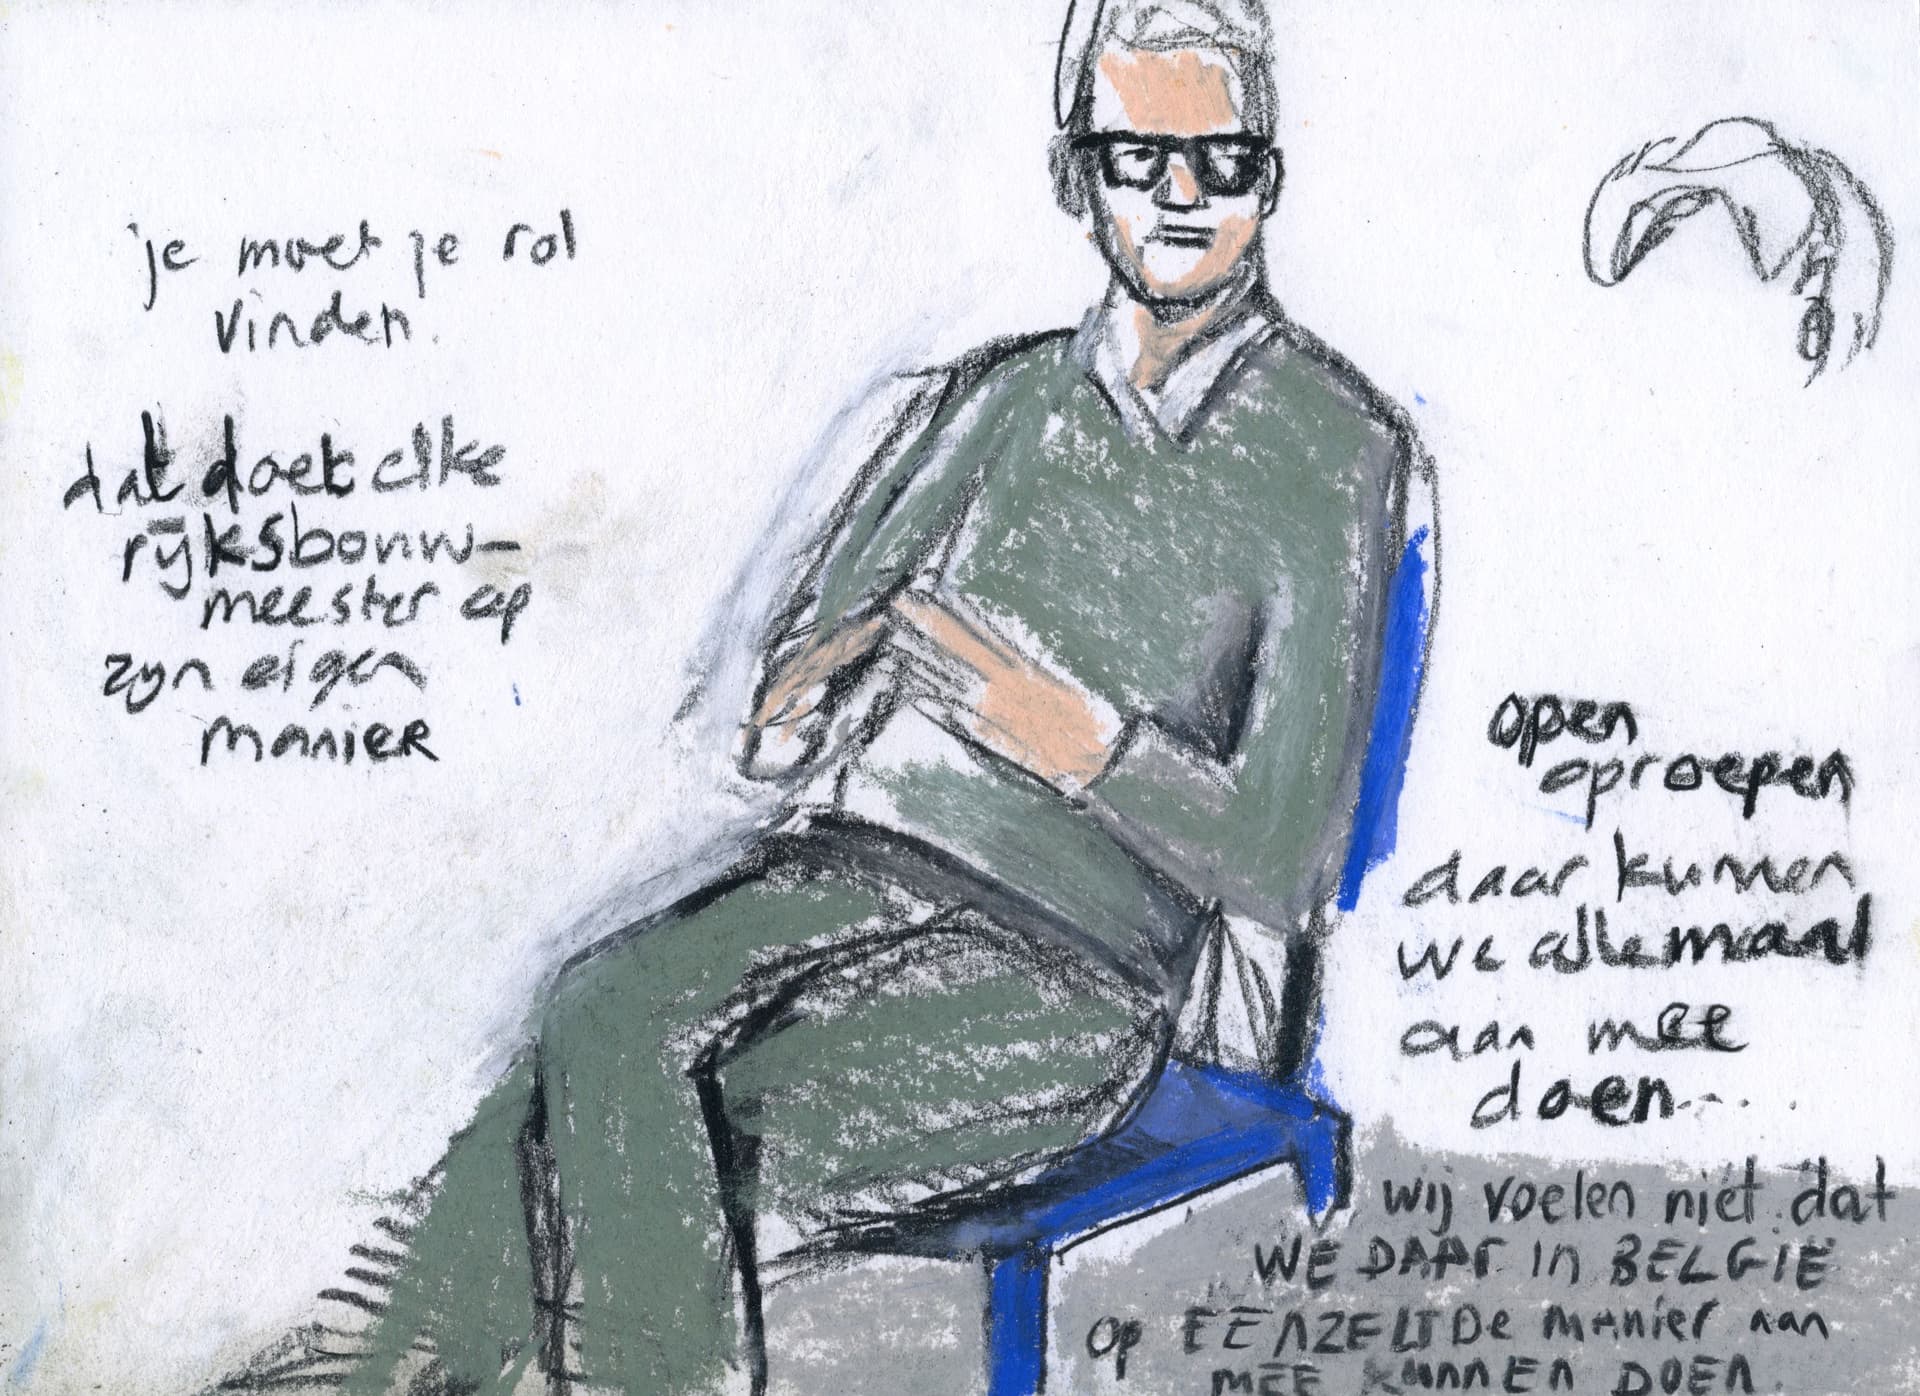 je moet je rol
vinden.
dat doet elke
rijksbouw-
meester op
zijn eigen
manier
open
oproepen
daar kunnen
we allemaal
aan mee
doen....
wij voelen niet dat
WE DAAR IN BELGIE
op EENZELFDE manier aan
MEE KUNNEN DOEN.